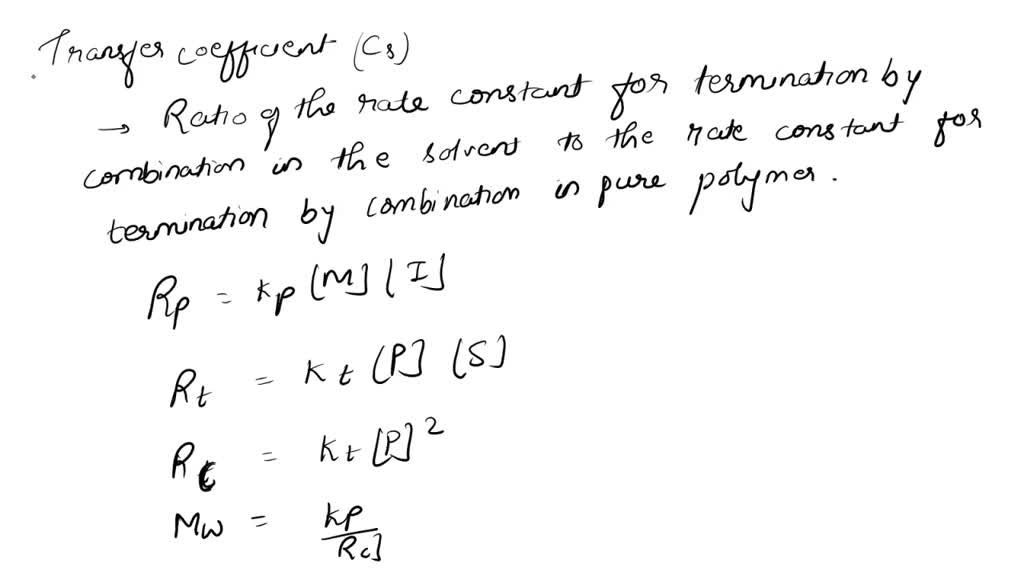 Transfer coefficient (Cs)
→ Ratio of the rate constant for termination by
combination in the solvent to the rate constant for
termination by combination in pure polymer.
Rp = kp [M] [I]
Rt = kt [P] [S]
Rc = kt [P]²
Mw = kp / Rc]